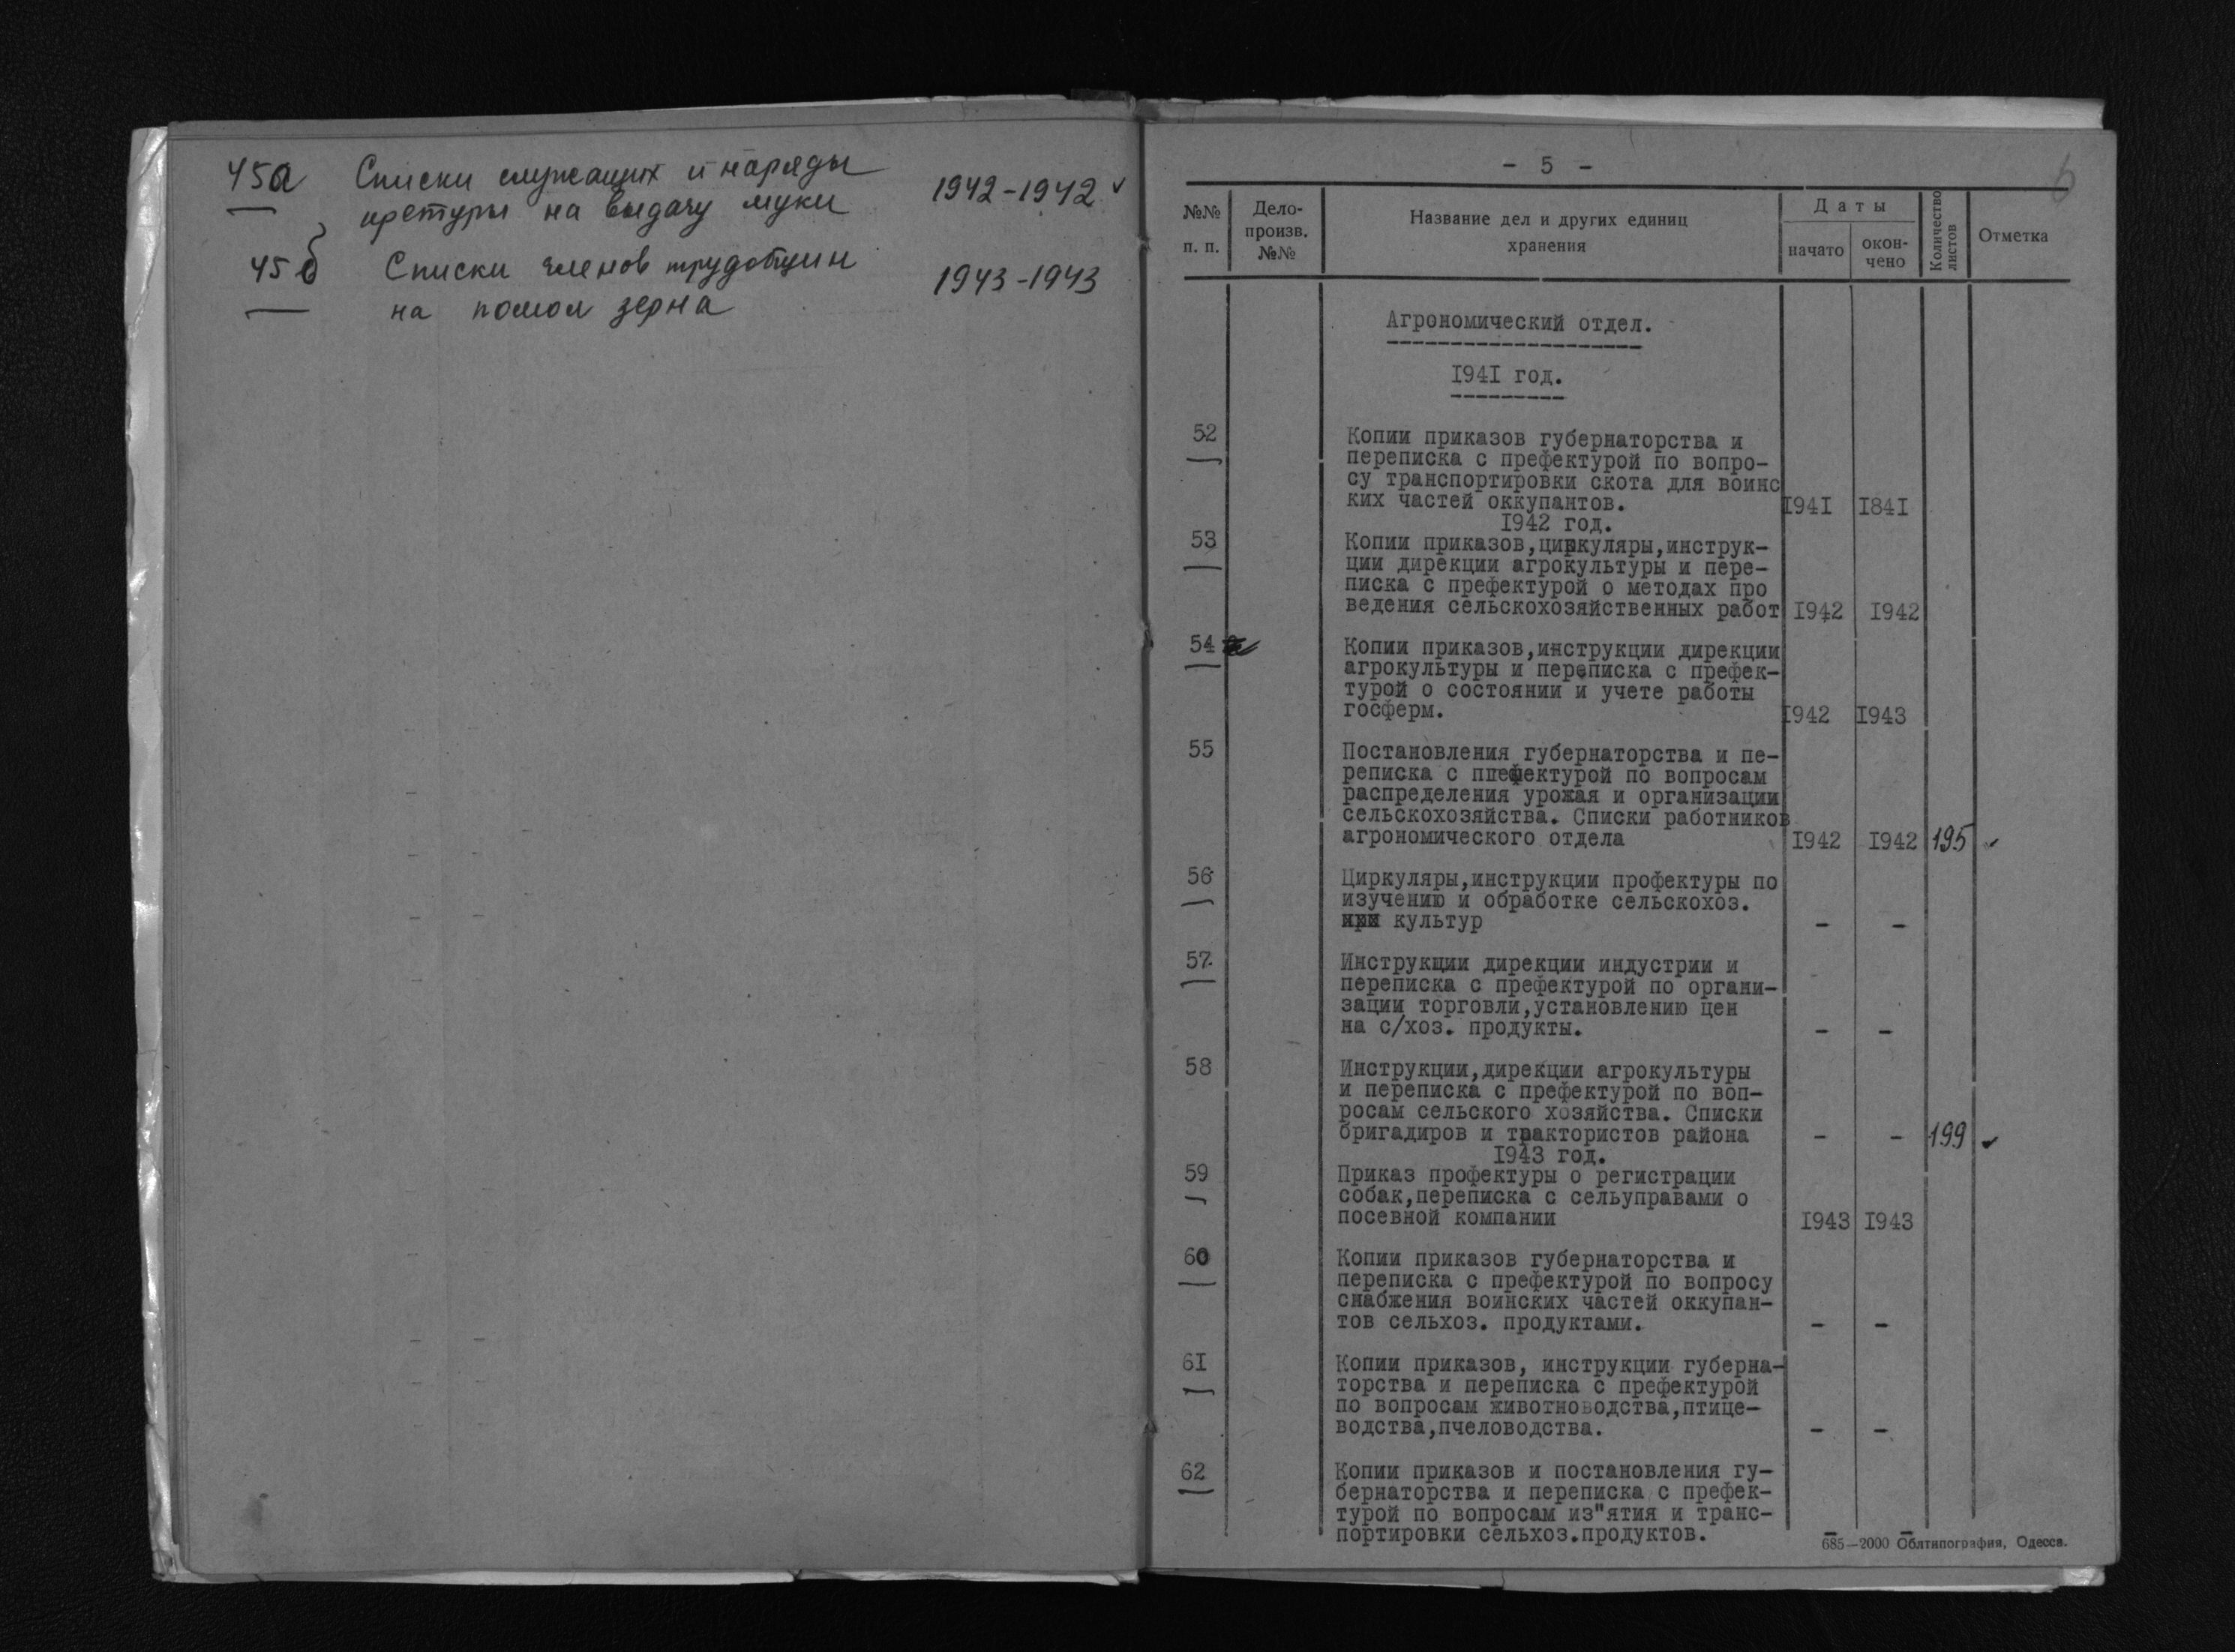 45а Списки служащих и наряды
претуры на выдачу муки 1942-1942 ✓
45б Списки членов трудобщин
на помол зерна 1943-1943
- 5 -
№№ п. п. Дело- произв. №№ Название дел и других единиц хранения Даты начато окон- чено Количество листов Отметка
Агрономический отдел.
1941 год.
52 Копии приказов губернаторства и
переписка с префектурой по вопро-
су транспортировки скота для воинс
ких частей оккупантов. 1941 1841
1942 год.
53 Копии приказов,циркуляры,инструк-
ции дирекции агрокультуры и пере-
писка с префектурой о методах про
ведения сельскохозяйственных работ 1942 1942
54 Копии приказов,инструкции дирекции
агрокультуры и переписка с префек-
турой о состоянии и учете работы
госферм. 1942 1943
55 Постановления губернаторства и пе-
реписка с префектурой по вопросам
распределения урожая и организации
сельскохозяйства. Списки работников
агрономического отдела 1942 1942 195 ✓
56 Циркуляры,инструкции профектуры по
изучению и обработке сельскохоз.
культур - -
57 Инструкции дирекции индустрии и
переписка с префектурой по органи-
зации торговли,установлению цен
на с/хоз. продукты. - -
58 Инструкции,дирекции агрокультуры
и переписка с префектурой по воп-
росам сельского хозяйства. Списки
бригадиров и трактористов района - - 199 ✓
1943 год.
59 Приказ профектуры о регистрации
собак,переписка с сельуправами о
посевной компании 1943 1943
60 Копии приказов губернаторства и
переписка с префектурой по вопросу
снабжения воинских частей оккупан-
тов сельхоз. продуктами. - -
61 Копии приказов, инструкции губерна-
торства и переписка с префектурой
по вопросам животноводства,птице-
водства,пчеловодства. - -
62 Копии приказов и постановления гу-
бернаторства и переписка с префек-
турой по вопросам из"ятия и транс-
портировки сельхоз.продуктов. - -
685—2000 Облтипография, Одесса.